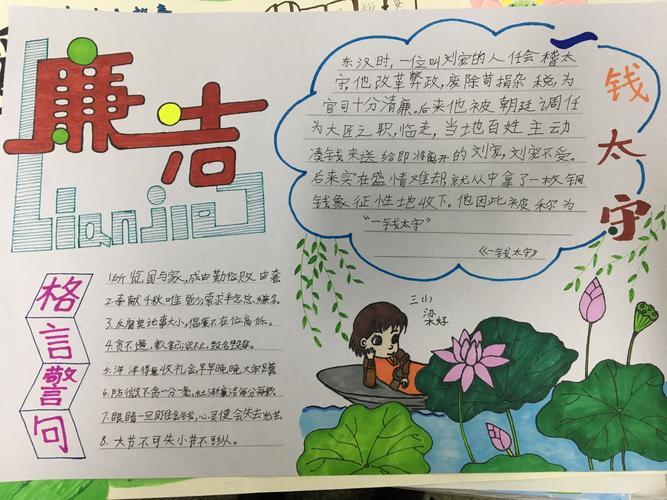 廉洁
Lianjie
一钱太守
东汉时,一位叫刘宠的人任会稽太
守,他改革弊政,废除苛捐杂税,为
官可十分清廉。后来他被朝廷调任
为大匠之职,临走,当地百姓主动
凑钱来送给即将离开的刘宠,刘宠不受。
后来实在盛情难却就从中拿了一枚铜
钱象征性地收下。他因此被称为
“一钱太守”
《一钱太守》
格言警句
1.历览国与家,成由勤俭败由奢
2.奉献千秋唯
3.反腐莫论事大小,倡廉不在位高低。
4.贪不
5.得复收礼会,早早晚晚
6.防微不贪一分一毫
7.眼睛一旦盯住金钱,心灵便会失去光芒。
8.大节不可失小节不可纵。
三小
梁妤